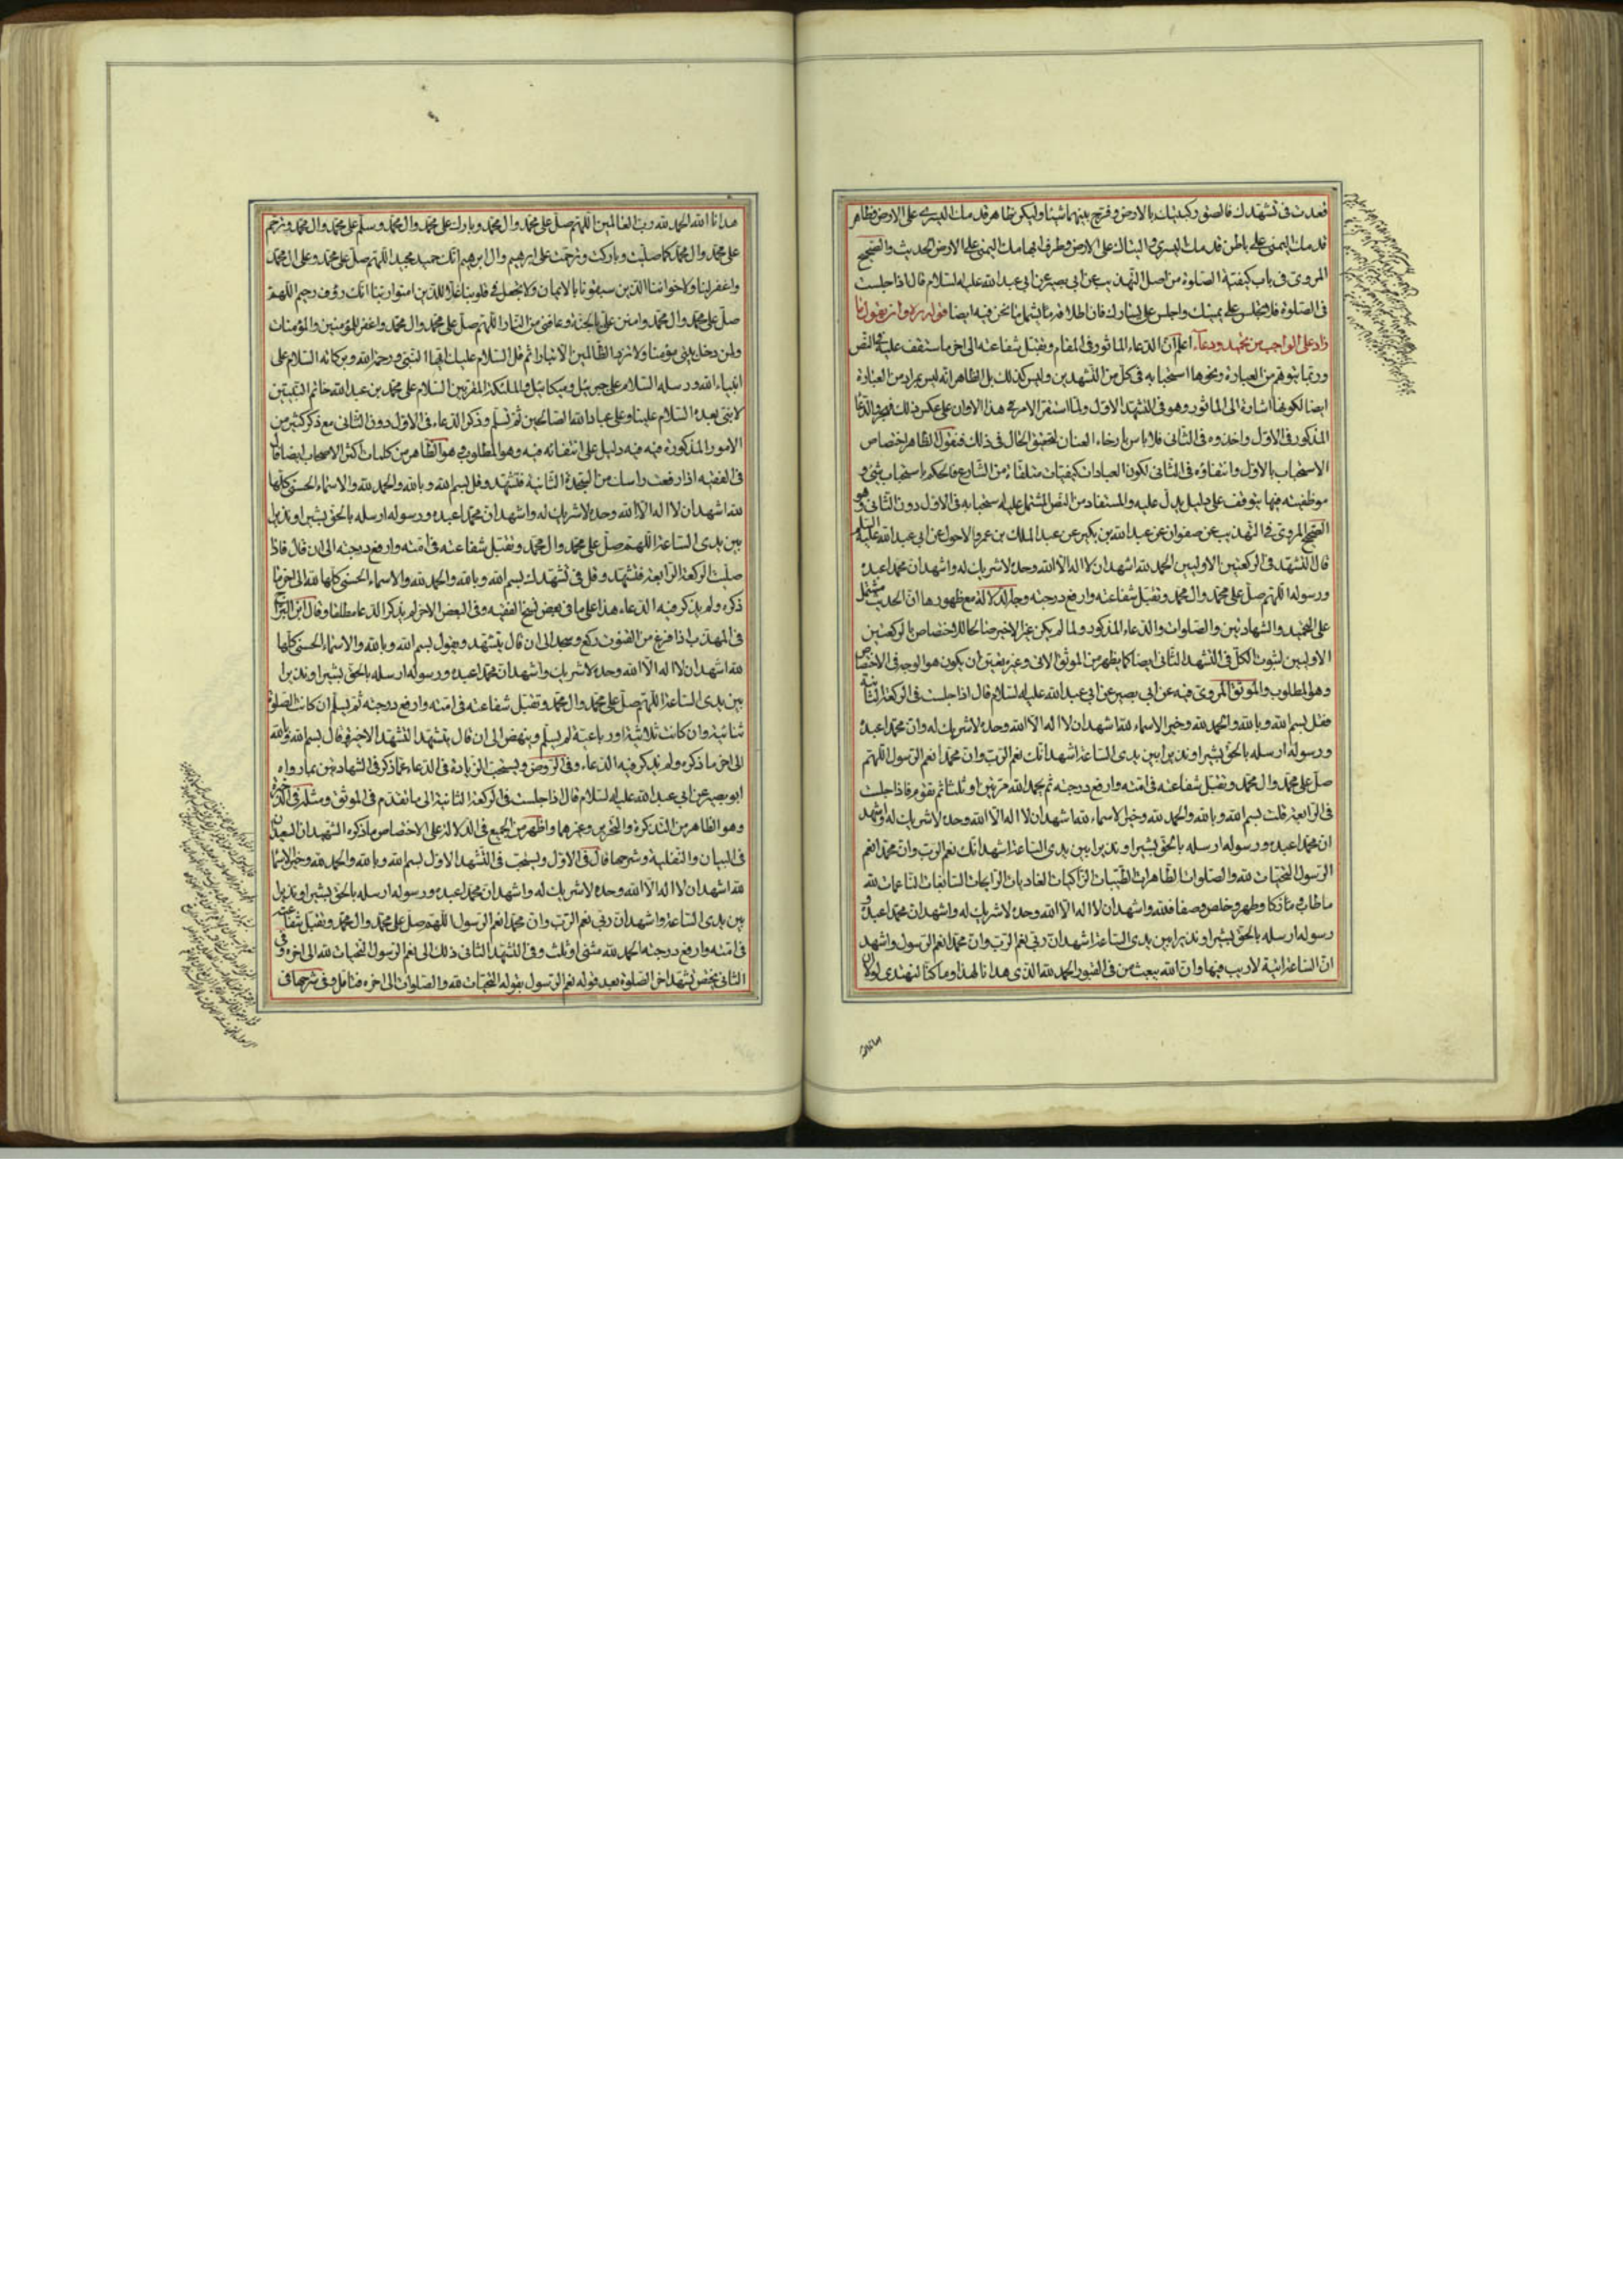 قعدت فى تشهدك فالصق ركبتيك بالارض وفرج بينهما شيئا وليكن ظاهر قدمك اليسرى على الارض وظاهر
قدمك اليمنى على باطن قدمك اليسرى والیتاك على الارض وطرف ابهامك اليمنى على الارض الحديث والصحيح
المروى فى باب كيفية الصلوة من اصل التهذيب عن ابى بصير عن ابى عبد الله عليه السلام قال اذا جلست
فى الصلوة فلا تجلس على يمينك واجلس على يسارك فان اطلاقه مما يشمل ما نحن فيه ايضا قوله وان يقول ما
زاد على الواجب من تحميد ودعاء اعلم ان الدعاء الماثور فى المقام وتقبل شفاعته الى اخر ما ستقف عليه فى النص
وربما يتوهم من العبارة ونحوها استحبابه فى كل من التشهدين وليس كذلك بل الظاهر انه ليس بمراد من العبارة
ايضا لكونها اشارة الى الماثور وهو فى التشهد الاول ولما استقر الامر فى هذا الاوان على عكس ذلك
المذكور فى الاول واخذوه فى الثانى فلا باس بارخاء العنان لتحقيق الحال فى ذلك فنقول الظاهر اختصاص
الاستحباب بالاول وانتفاؤه فى الثانى لكون العبادات كيفيات متلقاة من الشارع فالحكم باستحباب شئ و
موظفيته فيها يتوقف على دليل يدل عليه والمستفاد من النص المشتمل عليه استحبابه فى الاول دون الثانى وهو
الصحيح المروى فى التهذيب عن صفوان عن عبد الله بن بكير عن عبد الملك بن عمرو الاحول عن ابى عبد الله عليه السلام
قال التشهد فى الركعتين الاوليين الحمد لله اشهد ان لا اله الا الله وحده لا شريك له واشهد ان محمدا عبده
ورسوله اللهم صل على محمد وال محمد وتقبل شفاعته وارفع درجته وجه الدلالة مع ظهورها ان الحديث مشتمل
على التحميد والشهادتين والصلوات والدعاء المذكور ولما لم يكن غير الاخير صالحا للاختصاص بالركعتين
الاوليين لثبوت الكل فى التشهد الثانى ايضا كما يظهر من الموثق الاتى وغيره يعين ان يكون هو الوجه فى الاختصاص
وهو المطلوب والموثق المروى فيه عن ابى بصير عن ابى عبد الله عليه السلام قال اذا جلست فى الركعة الثانية
فقل بسم الله وبالله والحمد لله وخير الاسماء لله اشهد ان لا اله الا الله وحده لا شريك له وان محمدا عبده
ورسوله ارسله بالحق بشيرا ونذيرا بين يدى الساعة اشهد انك نعم الرب وان محمدا نعم الرسول اللهم
صل على محمد وال محمد وتقبل شفاعته فى امته وارفع درجته ثم يحمد الله مرتين او ثلثا ثم تقوم فاذا جلست
فى الرابعة قلت بسم الله وبالله والحمد لله وخير الاسماء لله اشهد ان لا اله الا الله وحده لا شريك له واشهد
ان محمدا عبده ورسوله ارسله بالحق بشيرا ونذيرا بين يدى الساعة اشهد انك نعم الرب وان محمدا نعم
الرسول التحيات لله والصلوات الطاهرات الطيبات الزاكيات الغاديات الرايحات السابغات الناعمات لله
ما طاب وزكا وطهر وخلص وصفا فلله واشهد ان لا اله الا الله وحده لا شريك له واشهد ان محمدا عبده و
رسوله ارسله بالحق بشيرا ونذيرا بين يدى الساعة اشهد ان ربى نعم الرب وان محمدا نعم الرسول واشهد
ان الساعة اتية لا ريب فيها وان الله يبعث من فى القبور الحمد لله الذى هدانا لهذا وما كنا لنهتدى لولا ان
هدانا الله الحمد لله رب العالمين اللهم صل على محمد وال محمد وبارك على محمد وال محمد وسلم على محمد وال محمد وترحم
على محمد وال محمد كما صليت وباركت وترحمت على ابرهيم وال ابرهيم انك حميد مجيد اللهم صل على محمد وعلى ال محمد
واغفر لنا ولاخواننا الذين سبقونا بالايمان ولا تجعل فى قلوبنا غلا للذين امنوا ربنا انك رؤف رحيم اللهم
صل على محمد وال محمد وامنن على بالجنة وعافنى من النار اللهم صل على محمد وال محمد واغفر للمؤمنين والمؤمنات
ولمن دخل بيتى مؤمنا ولا تزد الظالمين الا تبارا ثم قل السلام عليك ايها النبى ورحمة الله وبركاته السلام على
انبياء الله ورسله السلام على جبرئيل وميكائيل والملئكة المقربين السلام على محمد بن عبد الله خاتم النبيين
لا نبى بعده السلام علينا وعلى عباد الله الصالحين ثم تسلم وذكر الدعاء فى الاول دون الثانى مع ذكر كثير من
الامور المذكورة فيه فيه دليل على انتفائه فيه وهو المطلوب هو الظاهر من كلمات اكثر الاصحاب ايضا قال
فى الفقيه اذا رفعت راسك من السجدة الثانية فتشهد وقل بسم الله وبالله والحمد لله والاسماء الحسنى كلها
لله اشهد ان لا اله الا الله وحده لا شريك له واشهد ان محمدا عبده ورسوله ارسله بالحق بشيرا ونذيرا
بين يدى الساعة اللهم صل على محمد وال محمد وتقبل شفاعته فى امته وارفع درجته الى ان قال فاذا
صليت الركعة الرابعة فتشهد وقل فى تشهدك بسم الله وبالله والحمد لله والاسماء الحسنى كلها لله الى اخر ما
ذكره ولم يذكر فيه الدعاء هذا على ما فى بعض نسخ الفقيه وفى البعض الاخر لم يذكر الدعا مطلقا وقال ابن البراج
فى المهذب اذا فرغ من القنوت ركع وسجد الى ان قال يتشهد ويقول بسم الله وبالله والاسماء الحسنى كلها
لله اشهد ان لا اله الا الله وحده لا شريك واشهد ان محمدا عبده ورسوله ارسله بالحق بشيرا ونذيرا
بين يدى الساعة اللهم صل على محمد وال محمد وتقبل شفاعته فى امته وارفع درجته ثم يسلم ان كانت الصلوة
ثنائية وان كانت ثلاثية او رباعية لم يسلم وينهض الى ان قال يتشهد التشهد الاخير وقال بسم الله وبالله
الى اخر ما ذكره ولم يذكر فيه الدعاء وفى الروض ويستحب الزيادة فى الدعاء عما ذكر فى الشهادتين بما رواه
ابو بصير عن ابى عبد الله عليه السلام قال اذا جلست فى الركعة الثانية الى ما تقدم فى الموثق ومثله فى الذخيرة
وهو الظاهر من التذكرة والتحرير وغيرهما واظهر من الجميع فى الدلالة على الاختصاص ما ذكره الشهيدان السعيدان
فى البيان والنفلية وشرحها قال فى الاول ويستحب فى التشهد الاول بسم الله وبالله والحمد لله وخير الاسماء
لله اشهد ان لا اله الا الله وحده لا شريك له واشهد ان محمدا عبده ورسوله ارسله بالحق بشيرا ونذيرا
بين يدى الساعة واشهد ان ربى نعم الرب وان محمدا نعم الرسول اللهم صل على محمد وال محمد وتقبل شفاعته
فى امته وارفع درجته الحمد لله مثنى او ثلث وفى التشهد الثانى ذلك الى نعم الرسول التحيات لله الى اخره وفى
الثانى يختص تشهد اخر الصلوة بعد قوله نعم الرسول بقوله التحيات لله والصلوات الى اخره فتامل وفى شرحها فى
هدانا الله